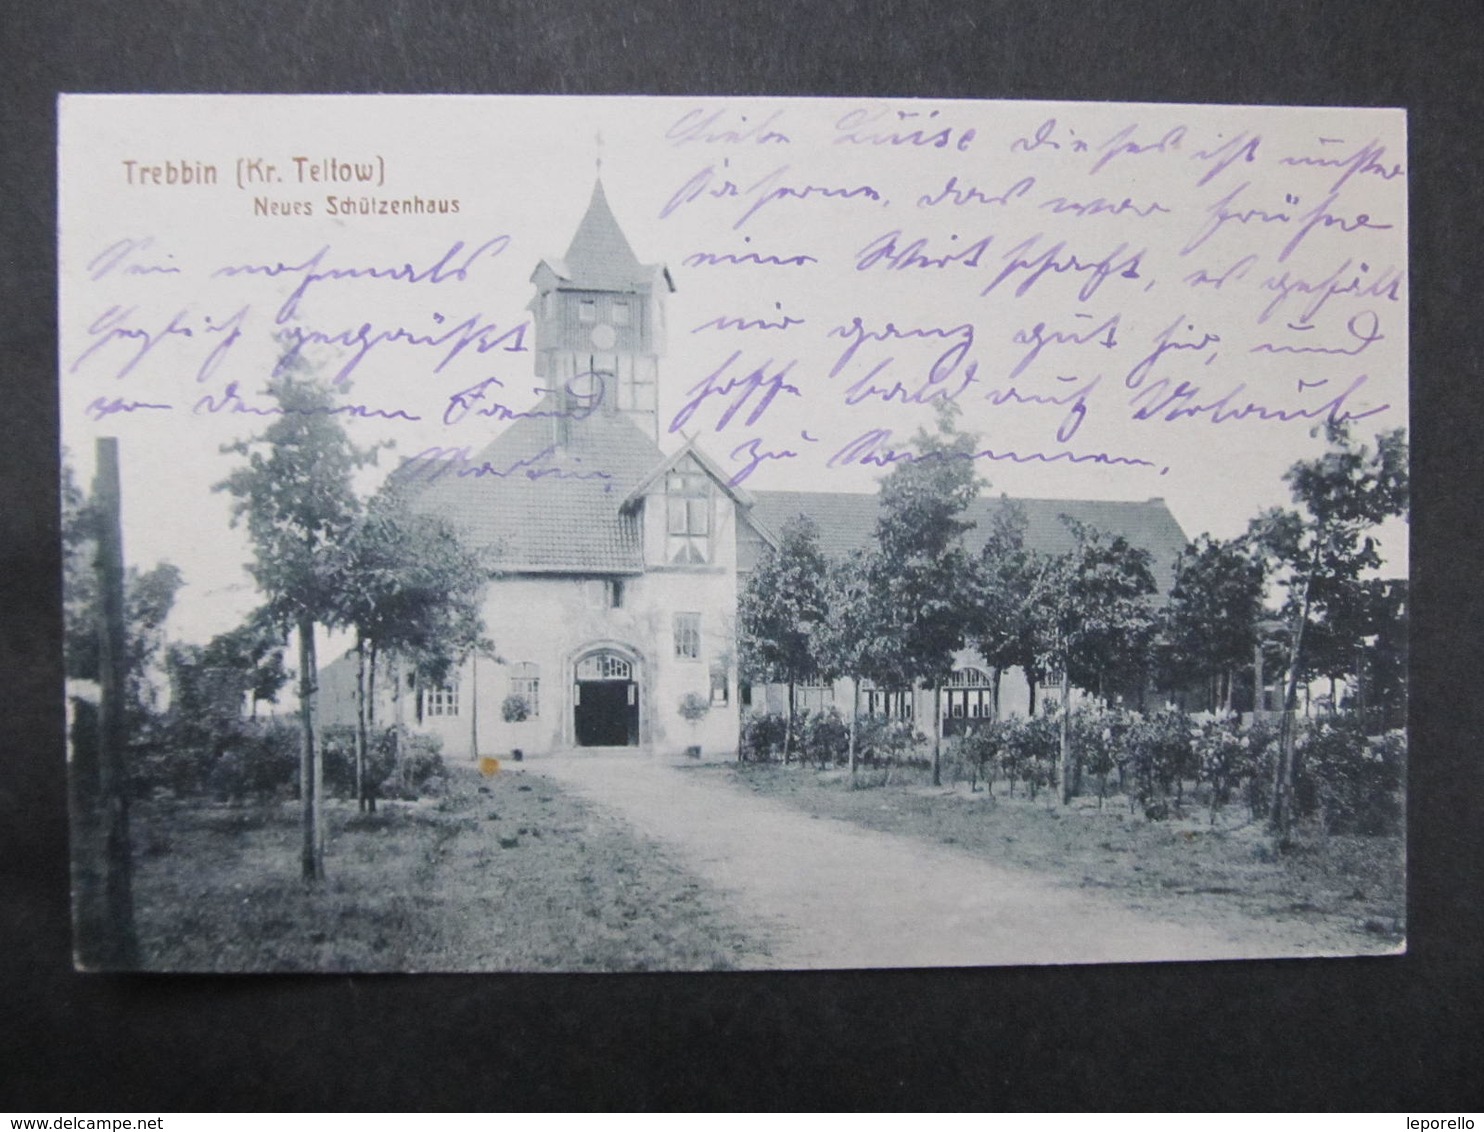 Trebbin (Kr. Teltow)
Neues Schützenhaus
Liebe Luise dieses ist unsere
Kaserne, das war frühe
eine Wirtschaft, es gefält
mir ganz gut hir, und
hoffe bald auf Urlaub
zu kommen.
Sei nochmals
herzlich gegrüßt
von deinem Freund
Martin
www.delcampe.net
leporello